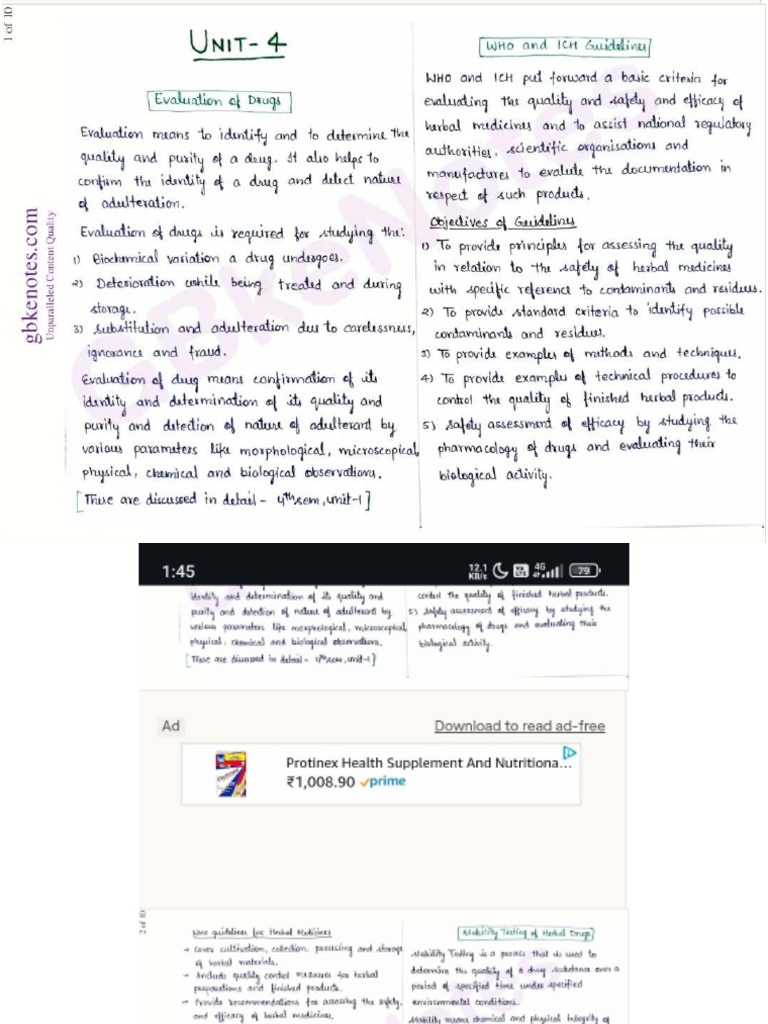 1 of 10
gbkenotes.com
Unparalleled Content Quality
UNIT-4
Evaluation of Drugs
Evaluation means to identify and to determine the
quality and purity of a drug. It also helps to
confirm the identity of a drug and detect nature
of adulteration.
Evaluation of drugs is required for studying the:
1) Biochemical variation a drug undergoes.
2) Deterioration while being treated and during
storage.
3) Substitution and adulteration due to carelessness,
ignorance and fraud.
Evaluation of drug means confirmation of its
identity and determination of its quality and
purity and detection of nature of adulterant by
various parameters like morphological, microscopical,
physical, chemical and biological observations.
[These are discussed in detail - 4th sem, unit-1]
WHO and ICH Guidelines
WHO and ICH put forward a basic criteria for
evaluating the quality and safety and efficacy of
herbal medicines and to assist national regulatory
authorities, scientific organisations and
manufactures to evalute the documentation in
respect of such products.
Objectives of Guidelines
1) To provide principles for assessing the quality
in relation to the safety of herbal medicines
with specific reference to contaminants and residues.
2) To provide standard criteria to identify possible
contaminants and residues.
3) To provide examples of methods and techniques.
4) To provide examples of technical procedures to
control the quality of finished herbal products.
5) Safety assessment of efficacy by studying the
pharmacology of drugs and evaluating their
biological activity.
GBkeNotes
1:45
12.1 KB/s 4G 79
identity and determination of its quality and
purity and detection of nature of adulterant by
various parameters like morphological, microscopical,
physical, chemical and biological observations.
[These are discussed in detail - 4th sem, unit-1]
control the quality of finished herbal products.
5) Safety assessment of efficacy by studying the
pharmacology of drugs and evaluating their
biological activity.
Ad
Download to read ad-free
Protinex Health Supplement And Nutritiona...
₹1,008.90 prime
2 of 10
WHO guidelines for Herbal Medicines
→ Covers cultivation, collection, processing and storage
of herbal materials.
→ Include quality control measures for herbal
preparations and finished products.
→ Provide recommendations for assessing the safety,
and efficacy of herbal medicines.
Stability Testing of Herbal Drugs
Stability Testing is a process that is used to
determine the quality of a drug substance over a
period of specified time under specified
environmental conditions.
Stability means chemical and physical integrity of